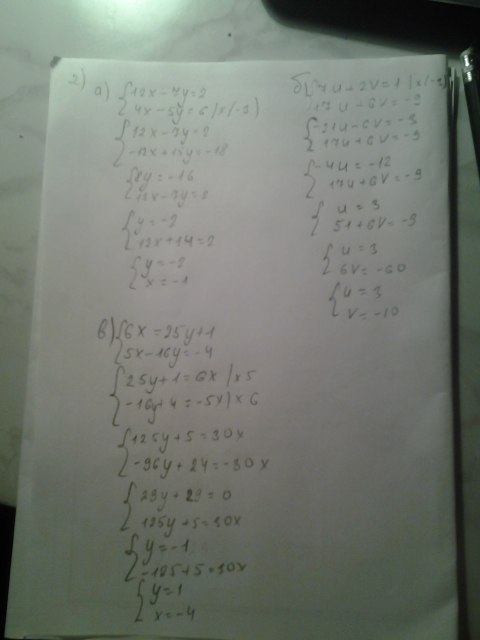 2)
а) {12x - 7y = 2
4x - 5y = 6 | x (-3)
{12x - 7y = 2
-12x + 15y = -18
{8y = -16
12x - 7y = 2
{y = -2
12x + 14 = 2
{y = -2
x = -1
б) {7u + 2v = 1 | x (-3)
17u + 6v = -9
{-21u - 6v = -3
17u + 6v = -9
{-4u = -12
17u + 6v = -9
{u = 3
51 + 6v = -9
{u = 3
6v = -60
{u = 3
v = -10
в) {6x = 25y + 1
5x - 16y = -4
{25y + 1 = 6x | x 5
-16y + 4 = -5x | x 6
{125y + 5 = 30x
-96y + 24 = -30x
{29y + 29 = 0
125y + 5 = 30x
{y = -1
-125 + 5 = 30x
{y = 1
x = -4